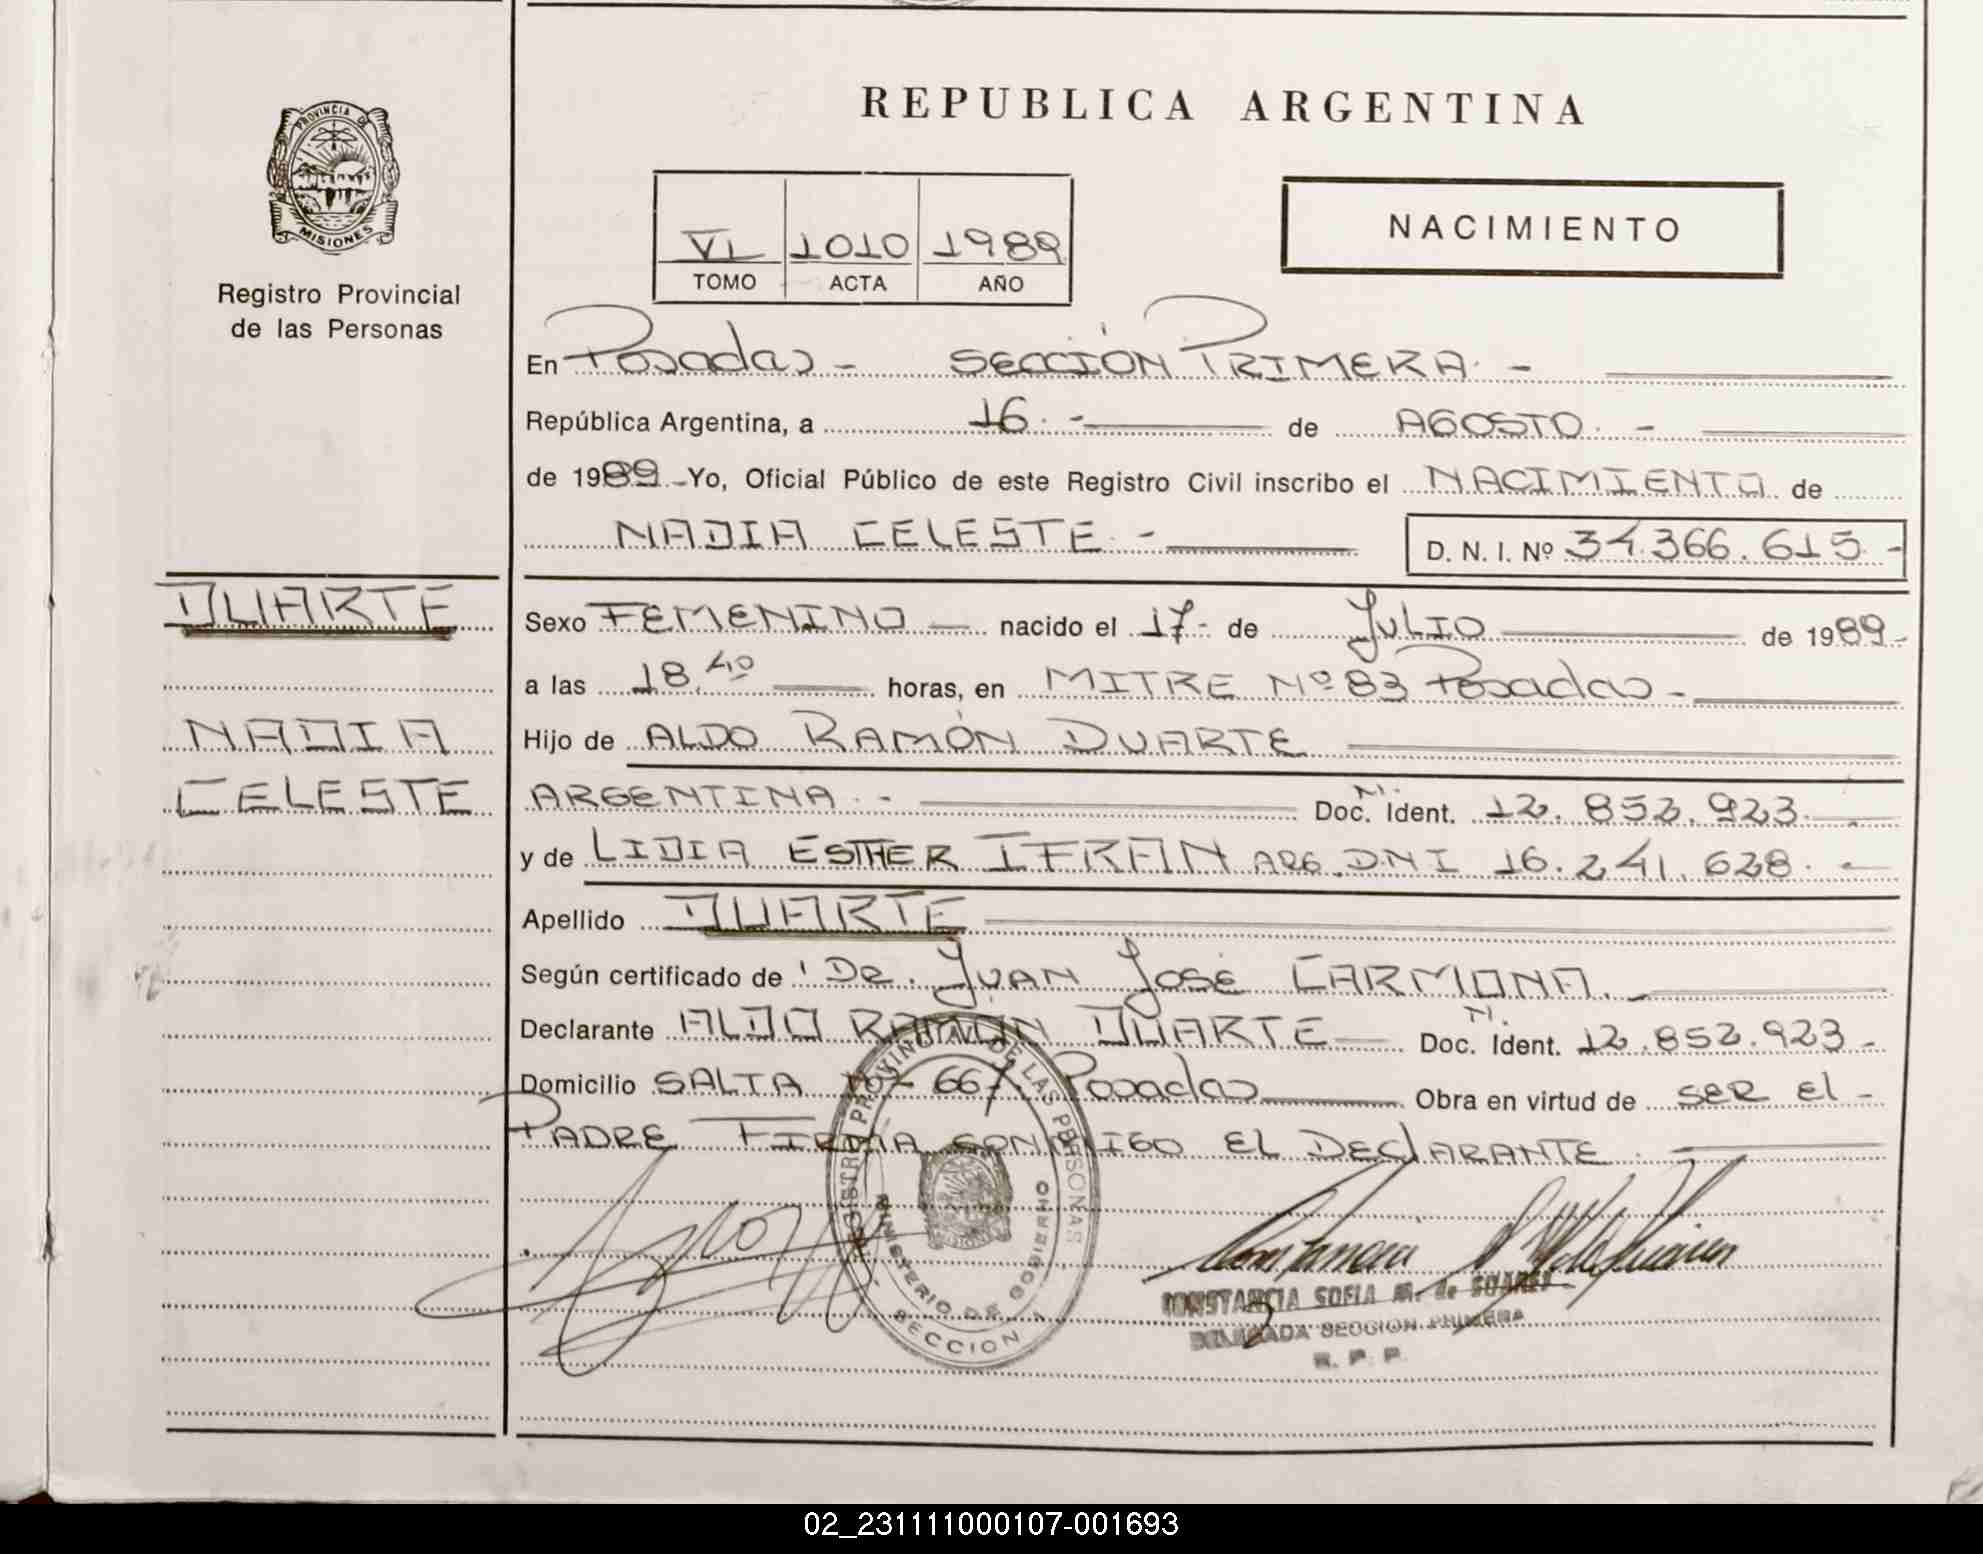 PROVINCIA DE
MISIONES
Registro Provincial
de las Personas
DUARTE
NADIA
CELESTE
REPUBLICA ARGENTINA
VI 1010 1989
TOMO ACTA AÑO
NACIMIENTO
En Posadas - SECCIÓN PRIMERA. -
República Argentina, a 16. - de AGOSTO. -
de 1989 - Yo, Oficial Público de este Registro Civil inscribo el NACIMIENTO de
NADIA CELESTE. - D. N. I. Nº 34.366.615. -
Sexo FEMENINO nacido el 17- de JULIO de 1989.-
a las 18,40 horas, en MITRE Nº 83 Posadas -
Hijo de ALDO RAMÓN DUARTE
ARGENTINA. - Doc. N. Ident. 12.852.923.
y de LIDIA ESTHER IFRAN ARG. DNI 16.241.628. -
Apellido DUARTE
Según certificado de DR. JUAN JOSÉ CARMONA. -
Declarante ALDO RAMÓN DUARTE Doc. N. Ident. 12.852.923 -
Domicilio SALTA Nº 667 Posadas Obra en virtud de SER El -
PADRE FIRMA CONMIGO EL DEClARANTE.
REGISTRO PROVINCIAL DE LAS PERSONAS
MINISTERIO DE GOBIERNO
SECCION 1
CONSTANCIA SOFIA M. de SUAREZ
DELEGADA SECCION PRIMERA
R. P. P.
02_231111000107-001693